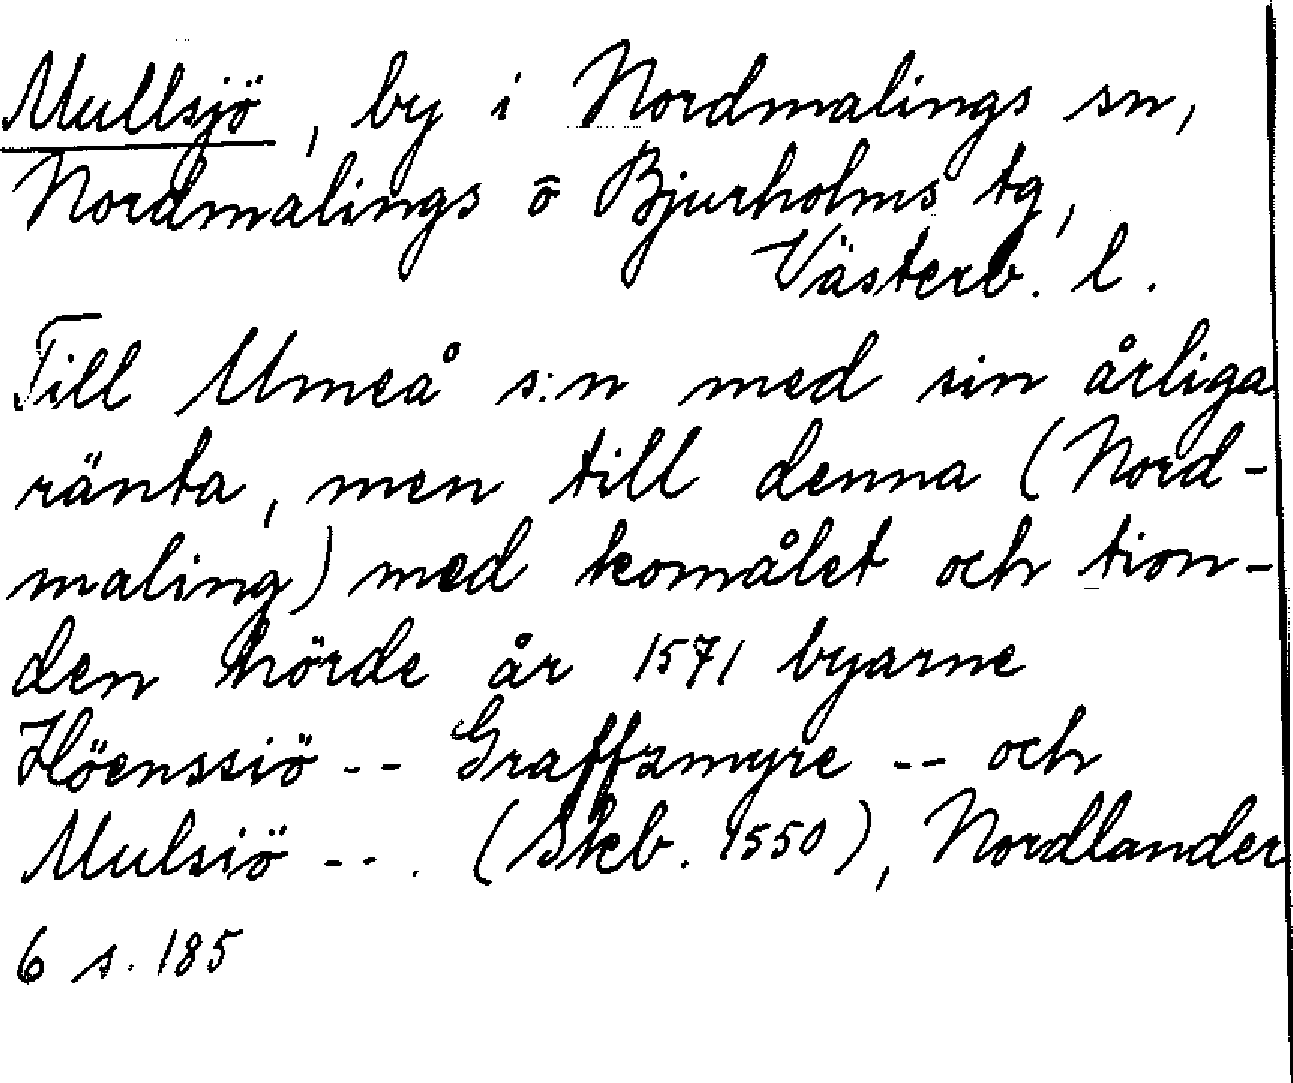 Mullsjö, by i Nordmalings sn,
Nordmalings o Bjurholms tg,
Västerb. l.
Till Umeå s:n med sin årliga
ränta, men till denna (Nord-
maling) med komålet och tion-
den hörde år 1571 byarne
Höenssiö -- Graffzmyre -- och
Mulsiö --. (Skb. 1550), Nordlander
6 s. 185